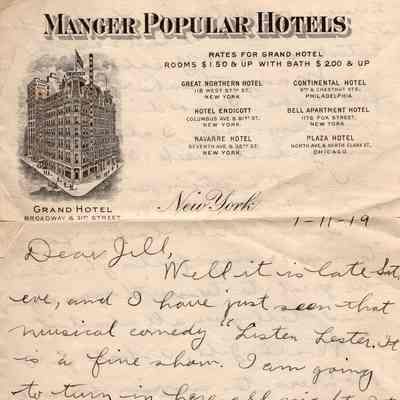 MANGER POPULAR HOTELS
RATES FOR GRAND HOTEL
ROOMS $1.50 & UP WITH BATH $2.00 & UP
GREAT NORTHERN HOTEL
118 WEST 57TH ST.
NEW YORK.
CONTINENTAL HOTEL
9TH & CHESTNUT STS.
PHILADELPHIA.
HOTEL ENDICOTT
COLUMBUS AVE. & 81ST ST.
NEW YORK.
BELL APARTMENT HOTEL
1178 FOX STREET,
NEW YORK.
NAVARRE HOTEL
SEVENTH AVE. & 38TH ST.
NEW YORK.
PLAZA HOTEL
NORTH AVE. & NORTH CLARK ST.
CHICAGO.
GRAND HOTEL
BROADWAY & 31ST STREET
New York
1-11-19
Dear Jill,
Well it is late Sat.
eve, and I have just seen that
musical comedy "Listen Lester. It
is a fine show. I am going
to turn in here all right